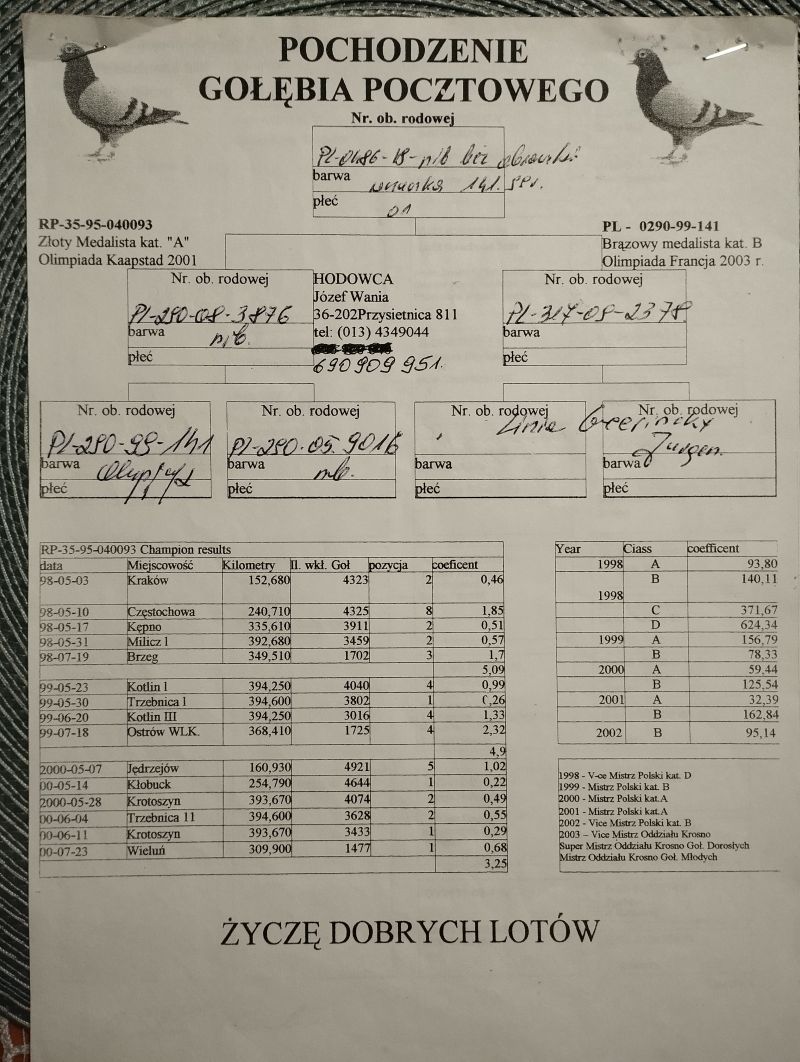 POCHODZENIE
GOŁĘBIA POCZTOWEGO
Nr. ob. rodowej
PL-0486-18- n/b bez
barwa wnuczka 141. spr.
płeć 01
RP-35-95-040093
Złoty Medalista kat. "A"
Olimpiada Kaapstad 2001
PL - 0290-99-141
Brązowy medalista kat. B
Olimpiada Francja 2003 r.
Nr. ob. rodowej
PL-290-08-3876
barwa n/b.
płeć
HODOWCA
Józef Wania
36-202Przysietnica 811
tel: (013) 4349044
690909951.
Nr. ob. rodowej
PL-314-09-2378
barwa
płeć
Nr. ob. rodowej
PL-290-99-141
barwa
płeć
Nr. ob. rodowej
PL-290-05.9016
barwa nb.
płeć
Nr. ob. rodowej
Linie
barwa
płeć
Nr. ob. rodowej
Jurgen.
barwa
płeć
RP-35-95-040093 Champion results
data Miejscowość Kilometry Il. wkł. Goł pozycja coeficent
98-05-03 Kraków 152,680 4323 2 0,46
98-05-10 Częstochowa 240,710 4325 8 1,85
98-05-17 Kępno 335,610 3911 2 0,51
98-05-31 Milicz l 392,680 3459 2 0,57
98-07-19 Brzeg 349,510 1702 3 1,7
5,09
99-05-23 Kotlin l 394,250 4040 4 0,99
99-05-30 Trzebnica l 394,600 3802 1 0,26
99-06-20 Kotlin III 394,250 3016 4 1,33
99-07-18 Ostrów WLK. 368,410 1725 4 2,32
4,9
2000-05-07 Jędrzejów 160,930 4921 5 1,02
00-05-14 Kłobuck 254,790 4644 1 0,22
2000-05-28 Krotoszyn 393,670 4074 2 0,49
00-06-04 Trzebnica 11 394,600 3628 2 0,55
00-06-11 Krotoszyn 393,670 3433 1 0,29
00-07-23 Wieluń 309,900 1477 1 0,68
3,25
Year Ciass coefficent
1998 A 93,80
B 140,11
1998
C 371,67
D 624,34
1999 A 156,79
B 78,33
2000 A 59,44
B 125,54
2001 A 32,39
B 162,84
2002 B 95,14
1998 - V-ce Mistrz Polski kat. D
1999 - Mistrz Polski kat. B
2000 - Mistrz Polski kat.A
2001 - Mistrz Polski kat.A
2002 - Vice Mistrz Polski kat. B
2003 – Vice Mistrz Oddziału Krosno
Super Mistrz Oddziału Krosno Goł. Dorosłych
Mistrz Oddziału Krosno Goł. Młodych
ŻYCZĘ DOBRYCH LOTÓW